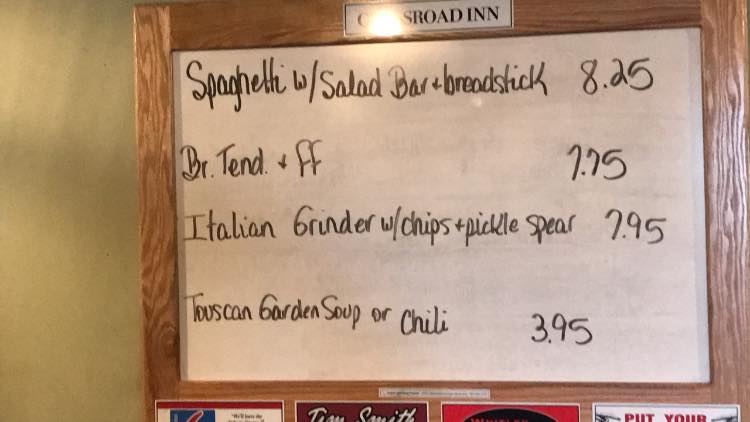 SROAD INN
Spaghetti w/Salad Bar + breadstick 8.25
Br. Tend. + ff 7.75
Italian Grinder w/chips + pickle spear 7.95
Touscan Garden Soup or Chili 3.95
Tim Smith
PUT YOUR